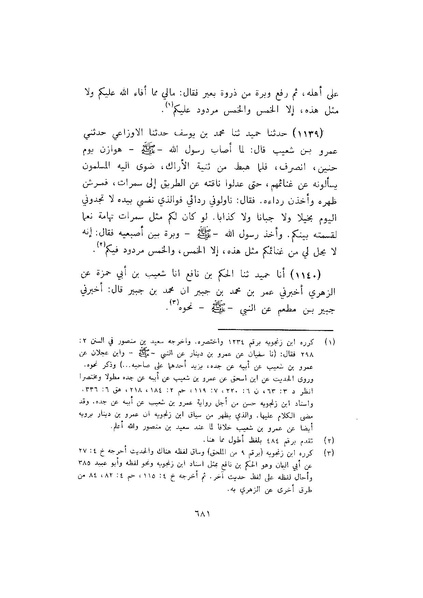 على أهله، ثم رفع وبرة من ذروة بعير فقال: مالي مما أفاء الله عليكم ولا
مثل هذه، إلا الخمس والخمس مردود عليكم(١).
(١١٣٩) حدثنا حميد ثنا محمد بن يوسف حدثنا الاوزاعي حدثني
عمرو بن شعيب قال: لما أصاب رسول الله - ﷺ - هوازن يوم
حنين، انصرف، فلما هبط من ثنية الأراك، ضوى اليه المسلمون
يسألونه عن غنائمهم، حتى عدلوا ناقته عن الطريق إلى سمرات، فمرشن
ظهره وأخذن رداءه. فقال: ناولوني ردائي فوالذي نفسي بيده لا تجدوني
اليوم بخيلا ولا جبانا ولا كذابا. لو كان لكم مثل سمرات تهامة نعما
لقسمته بينكم. وأخذ رسول الله - ﷺ - وبرة بين أصبعيه فقال: إنه
لا يحل لي من غنائمكم مثل هذه، إلا الخمس، والخمس مردود فيكم(٢).
(١١٤٠) أنا حميد ثنا الحكم بن نافع انا شعيب بن أبي حمزة عن
الزهري أخبرني عمر بن محمد بن جبير ان محمد بن جبير قال: أخبرني
جبير بن مطعم عن النبي - ﷺ - نحوه(٣).
(١) كرره ابن زنجويه برقم ١٢٣٤ واختصره. واخرجه سعيد بن منصور في السنن ٢:
٢٩٨ فقال: (نا سفيان عن عمرو بن دينار عن النبي - ﷺ - وابن عجلان عن
عمرو بن شعيب عن أبيه عن جده، يزيد أحدهما على صاحبه...) وذكر نحوه.
وروى الحديث عن ابن اسحق عن عمرو بن شعيب عن أبيه عن جده مطولا ومختصرا
انظر د ٣: ٦٣، ن ٦: ٢٢٠، ٧: ١١٩، حم ٢: ١٨٤، ٢١٨، هق ٦: ٣٣٦.
واسناد ابن زنجويه حسن من أجل رواية عمرو بن شعيب عن أبيه عن جده. وقد
مضى الكلام عليها. والذي يظهر من سياق ابن زنجويه ان عمرو بن دينار يرويه
أيضا عن عمرو بن شعيب خلافا لما عند سعيد بن منصور والله أعلم.
(٢) تقدم برقم ٤٨٤ بلفظ أطول مما هنا.
(٣) كرره ابن زنجويه (برقم ٩ من الملحق) وساق لفظه هناك والحديث أخرجه خ ٤: ٢٧
عن أبي اليمان وهو الحكم بن نافع بمثل اسناد ابن زنجويه ونحو لفظه وأبو عبيد ٣٨٥
وأحال لفظه على لفظ حديث آخر. ثم أخرجه خ ٤: ١١٥، حم ٤: ٨٢، ٨٤ من
طرق أخرى عن الزهري به.
٦٨١